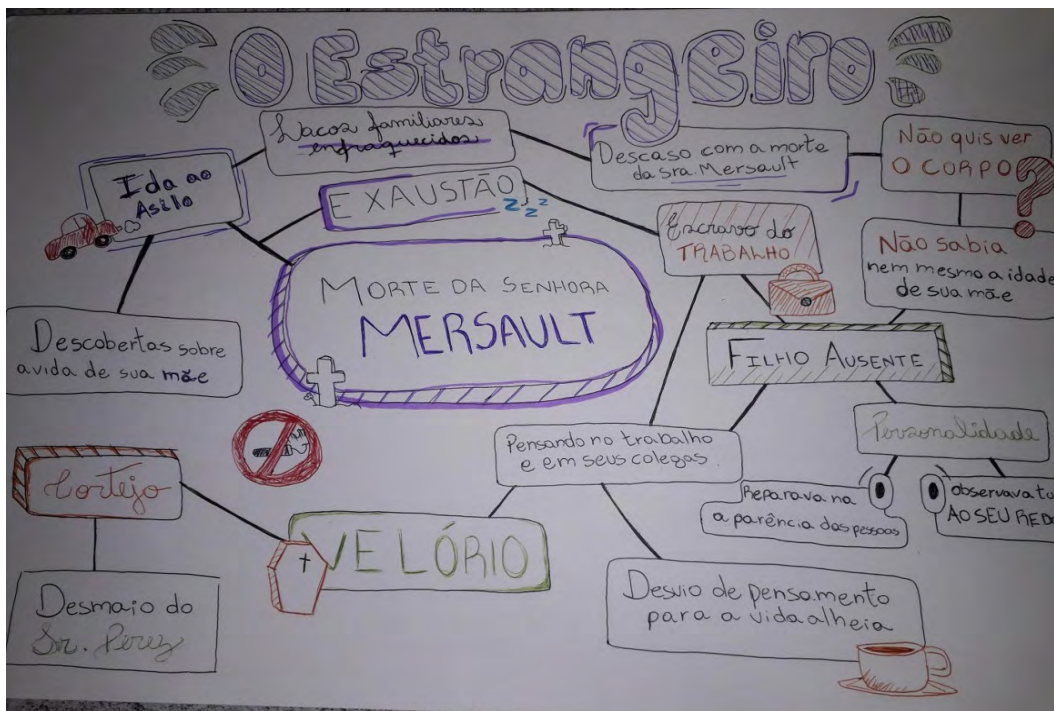 O Estrangeiro
Laços familiares
enfraquecidos
Descaso com a morte
da sra. Mersault
Não quis ver
O CORPO
?
Ida ao
Asilo
EXAUSTÃO
zzz
Escravo do
TRABALHO
Não sabia
nem mesmo a idade
de sua mãe
MORTE DA SENHORA
MERSAULT
Descobertas sobre
a vida de sua mãe
FILHO AUSENTE
Personalidade
Pensando no trabalho
e em seus colegas
Reparava na
aparência das pessoas
observava tu
AO SEU RED
Cortejo
VELÓRIO
Desmaio do
Sr. Perez
Desvio de pensamento
para a vida alheia